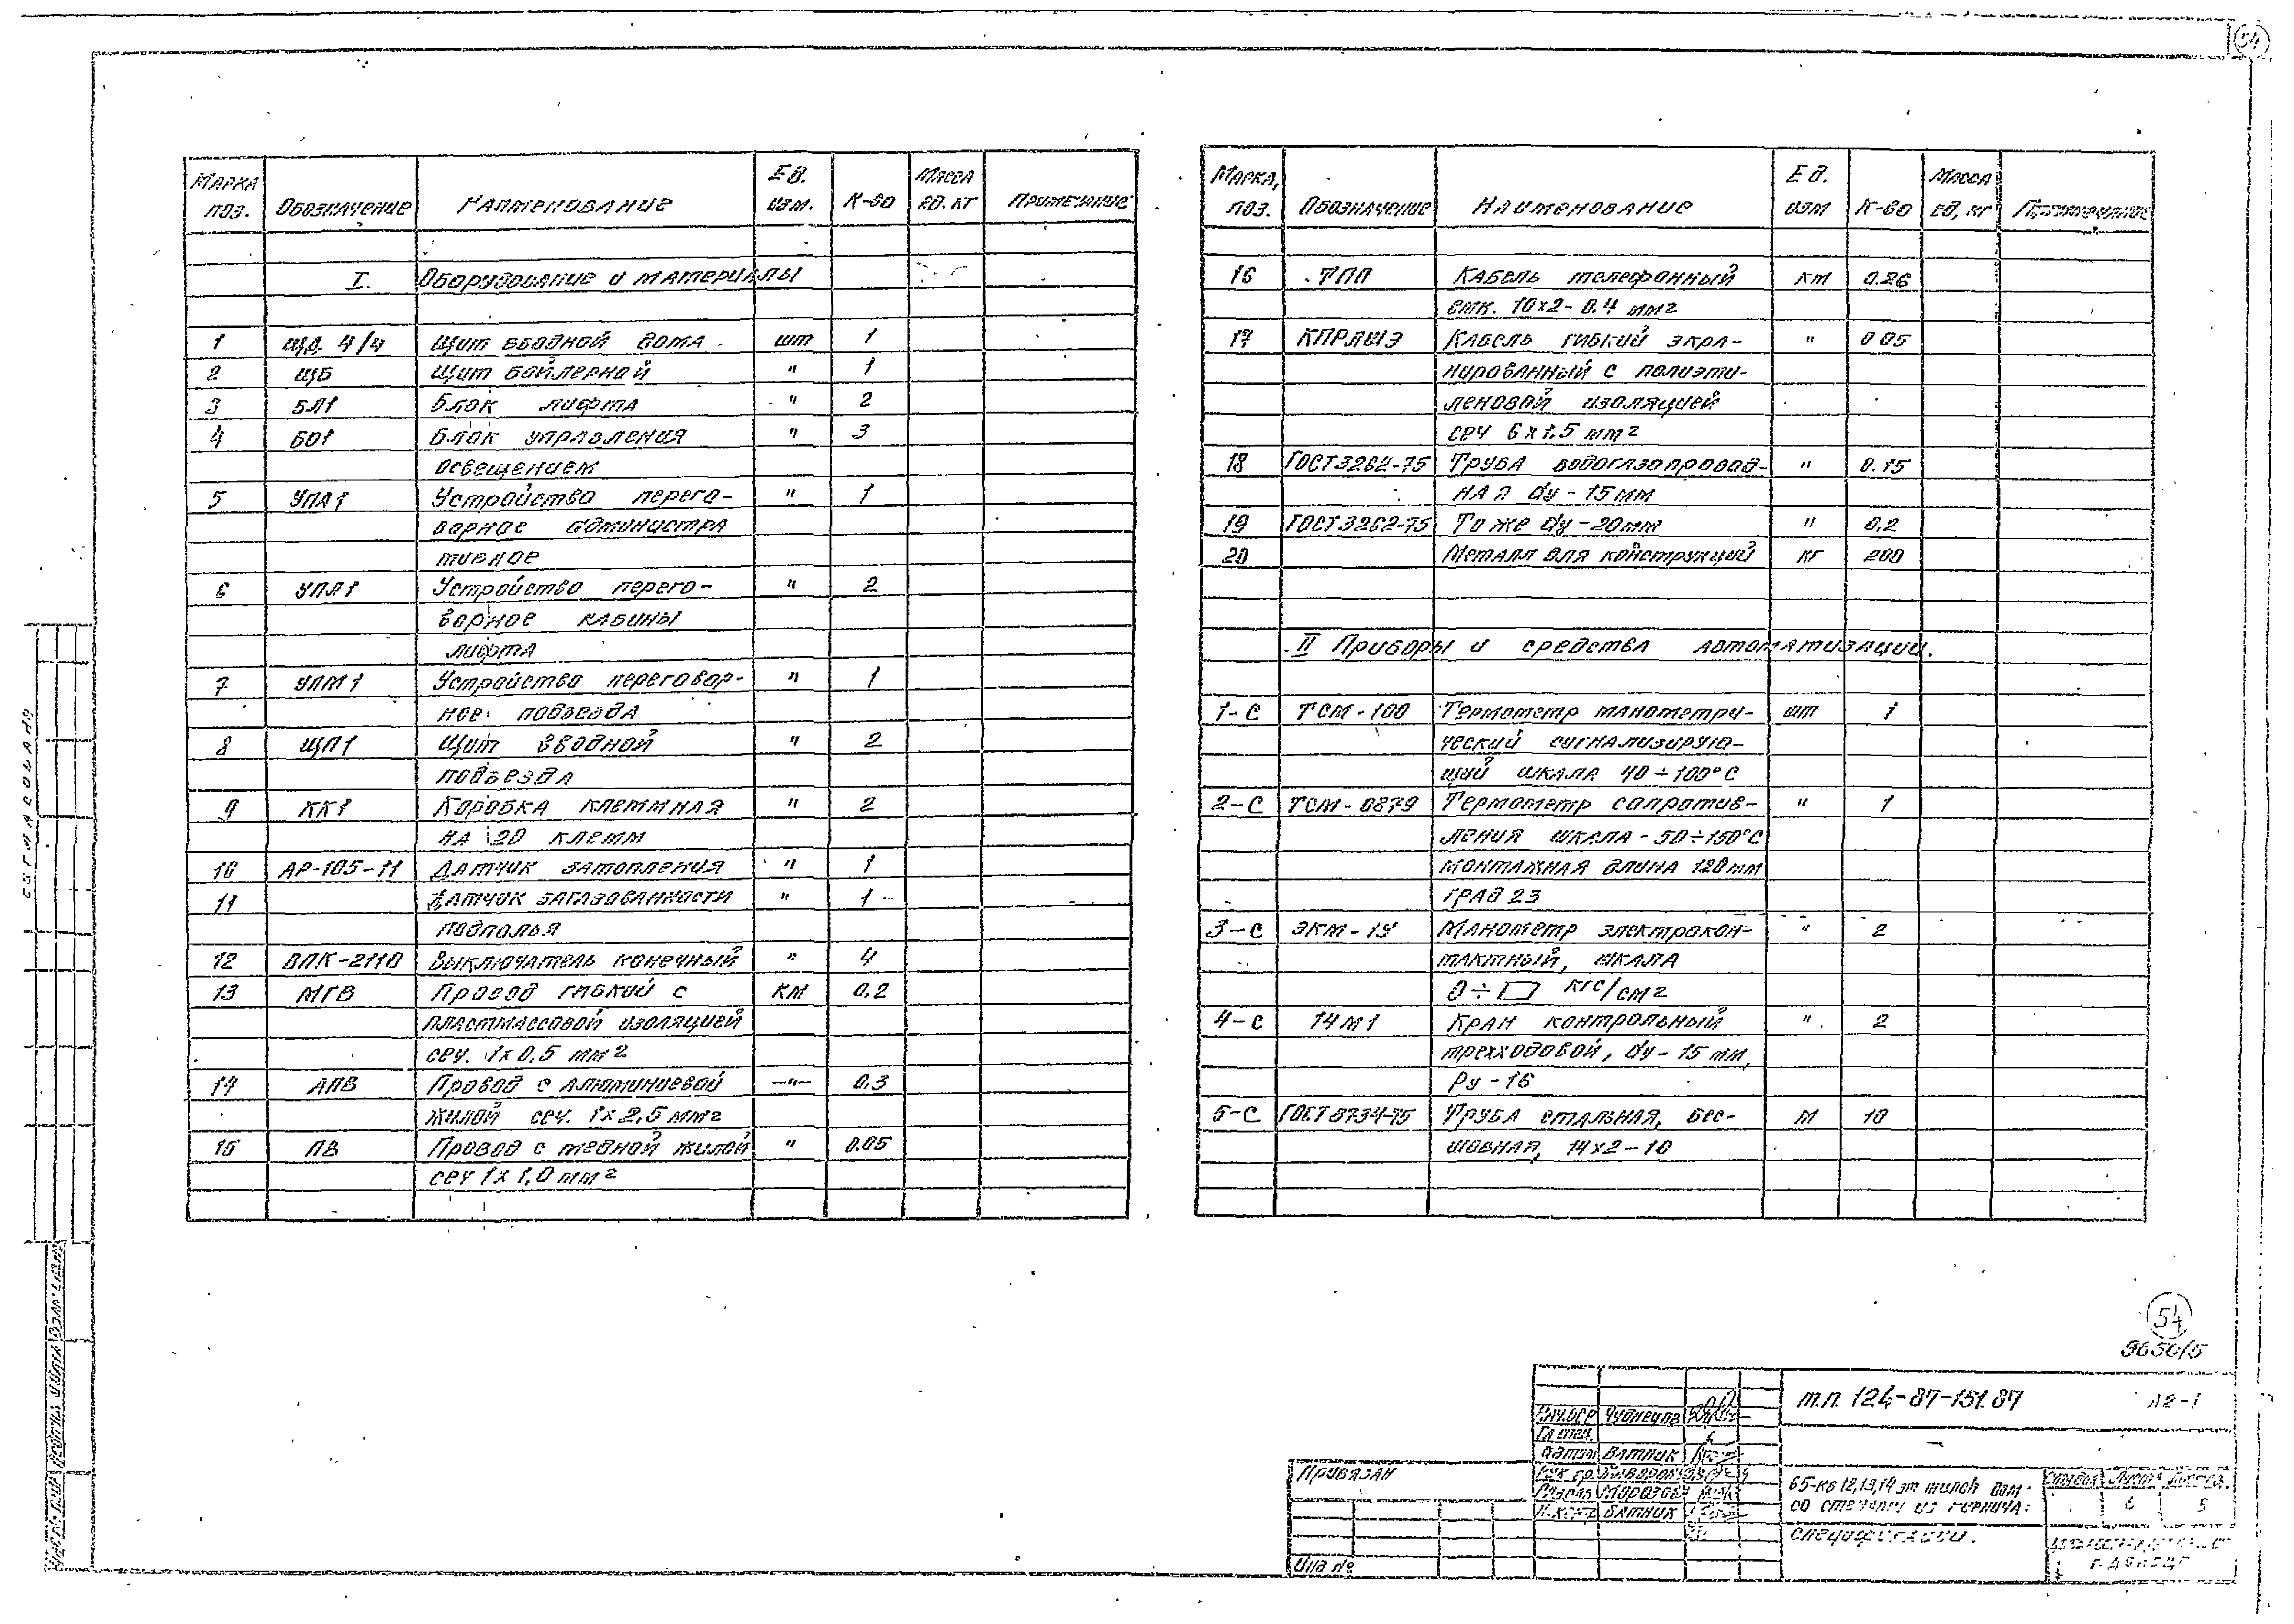 54
Марка поз. Обозначение Наименование Ед. изм. К-во Масса ед. кг Примечание
I. Оборудование и материалы
1 ЩД 4/4 Щит вводной дома шт 1
2 ЩБ Щит бойлерной " 1
3 БЛ1 Блок лифта " 2
4 БО1 Блок управления " 3
освещением
5 УПА1 Устройство перего- " 1
ворное администра
тивное
6 УПЛ1 Устройство перего- " 2
ворное кабины
лифта
7 УПМ1 Устройство переговор- " 1
ное подъезда
8 ЩП1 Щит вводной " 2
подъезда
9 КК1 Коробка клеммная " 2
на 20 клемм
10 АР-105-11 Датчик затопления " 1
11 Датчик загазованности " 1
подполья
12 ВПК-2110 Выключатель конечный " 4
13 МГВ Провод гибкий с км 0.2
пластмассовой изоляцией
сеч. 1х0.5 мм2
14 АПВ Провод с алюминиевой —"— 0.3
жилой сеч. 1х2,5 мм2
15 ПВ Провод с медной жилой " 0.05
сеч 1х1,0 мм2
Марка, поз. Обозначение Наименование Ед. изм К-во Масса ед, кг Примечание
16 ТПП Кабель телефонный км 0.26
емк. 10х2-0.4 мм2
17 КПРЛШЭ Кабель гибкий экра- " 0 05
нированный с полиэти-
леновой изоляцией
сеч 6х1.5 мм2
18 ГОСТ 3262-75 Труба водогазопровод- " 0.15
ная dу-15мм
19 ГОСТ 3262-75 То же dу-20мм " 0.2
20 Металл для конструкций кг 200
II Приборы и средства автоматизации.
1-С ТСМ-100 Термометр манометри- шт 1
ческий сигнализирую-
щий шкала 40÷100°С
2-С ТСМ-0879 Термометр сопротив- " 1
ления шкала -50÷150°С
монтажная длина 120мм
град 23
3-С ЭКМ-1У Манометр электрокон- " 2
тактный, шкала
0÷ кгс/см2
4-С 14М1 Кран контрольный " 2
трехходовой, dу-15 мм,
Ру-16
5-С ГОСТ 8734-75 Труба стальная, бес- м 10
шовная, 14х2-10
согласовано
54
9650/5
т.п. 124-87-151.87 Л2-1
Гл спец.
Ватник
Рук гр.
Морозов
Н.контр Ватник
Привязан
Инв №
65-кв 12,13,14 эт жилой дом
со стенами из кирпича.
Стадия Лист Листов
6
Спецификации.